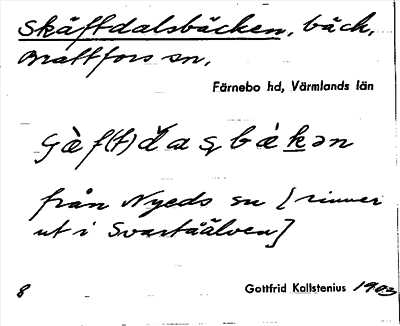 Skäftdalsbäcken, bäck,
Brattfors sn,
Färnebo hd, Värmlands län
från Nyeds sn [rinner
ut i Svartåälven]
8 Gottfrid Kallstenius 1903